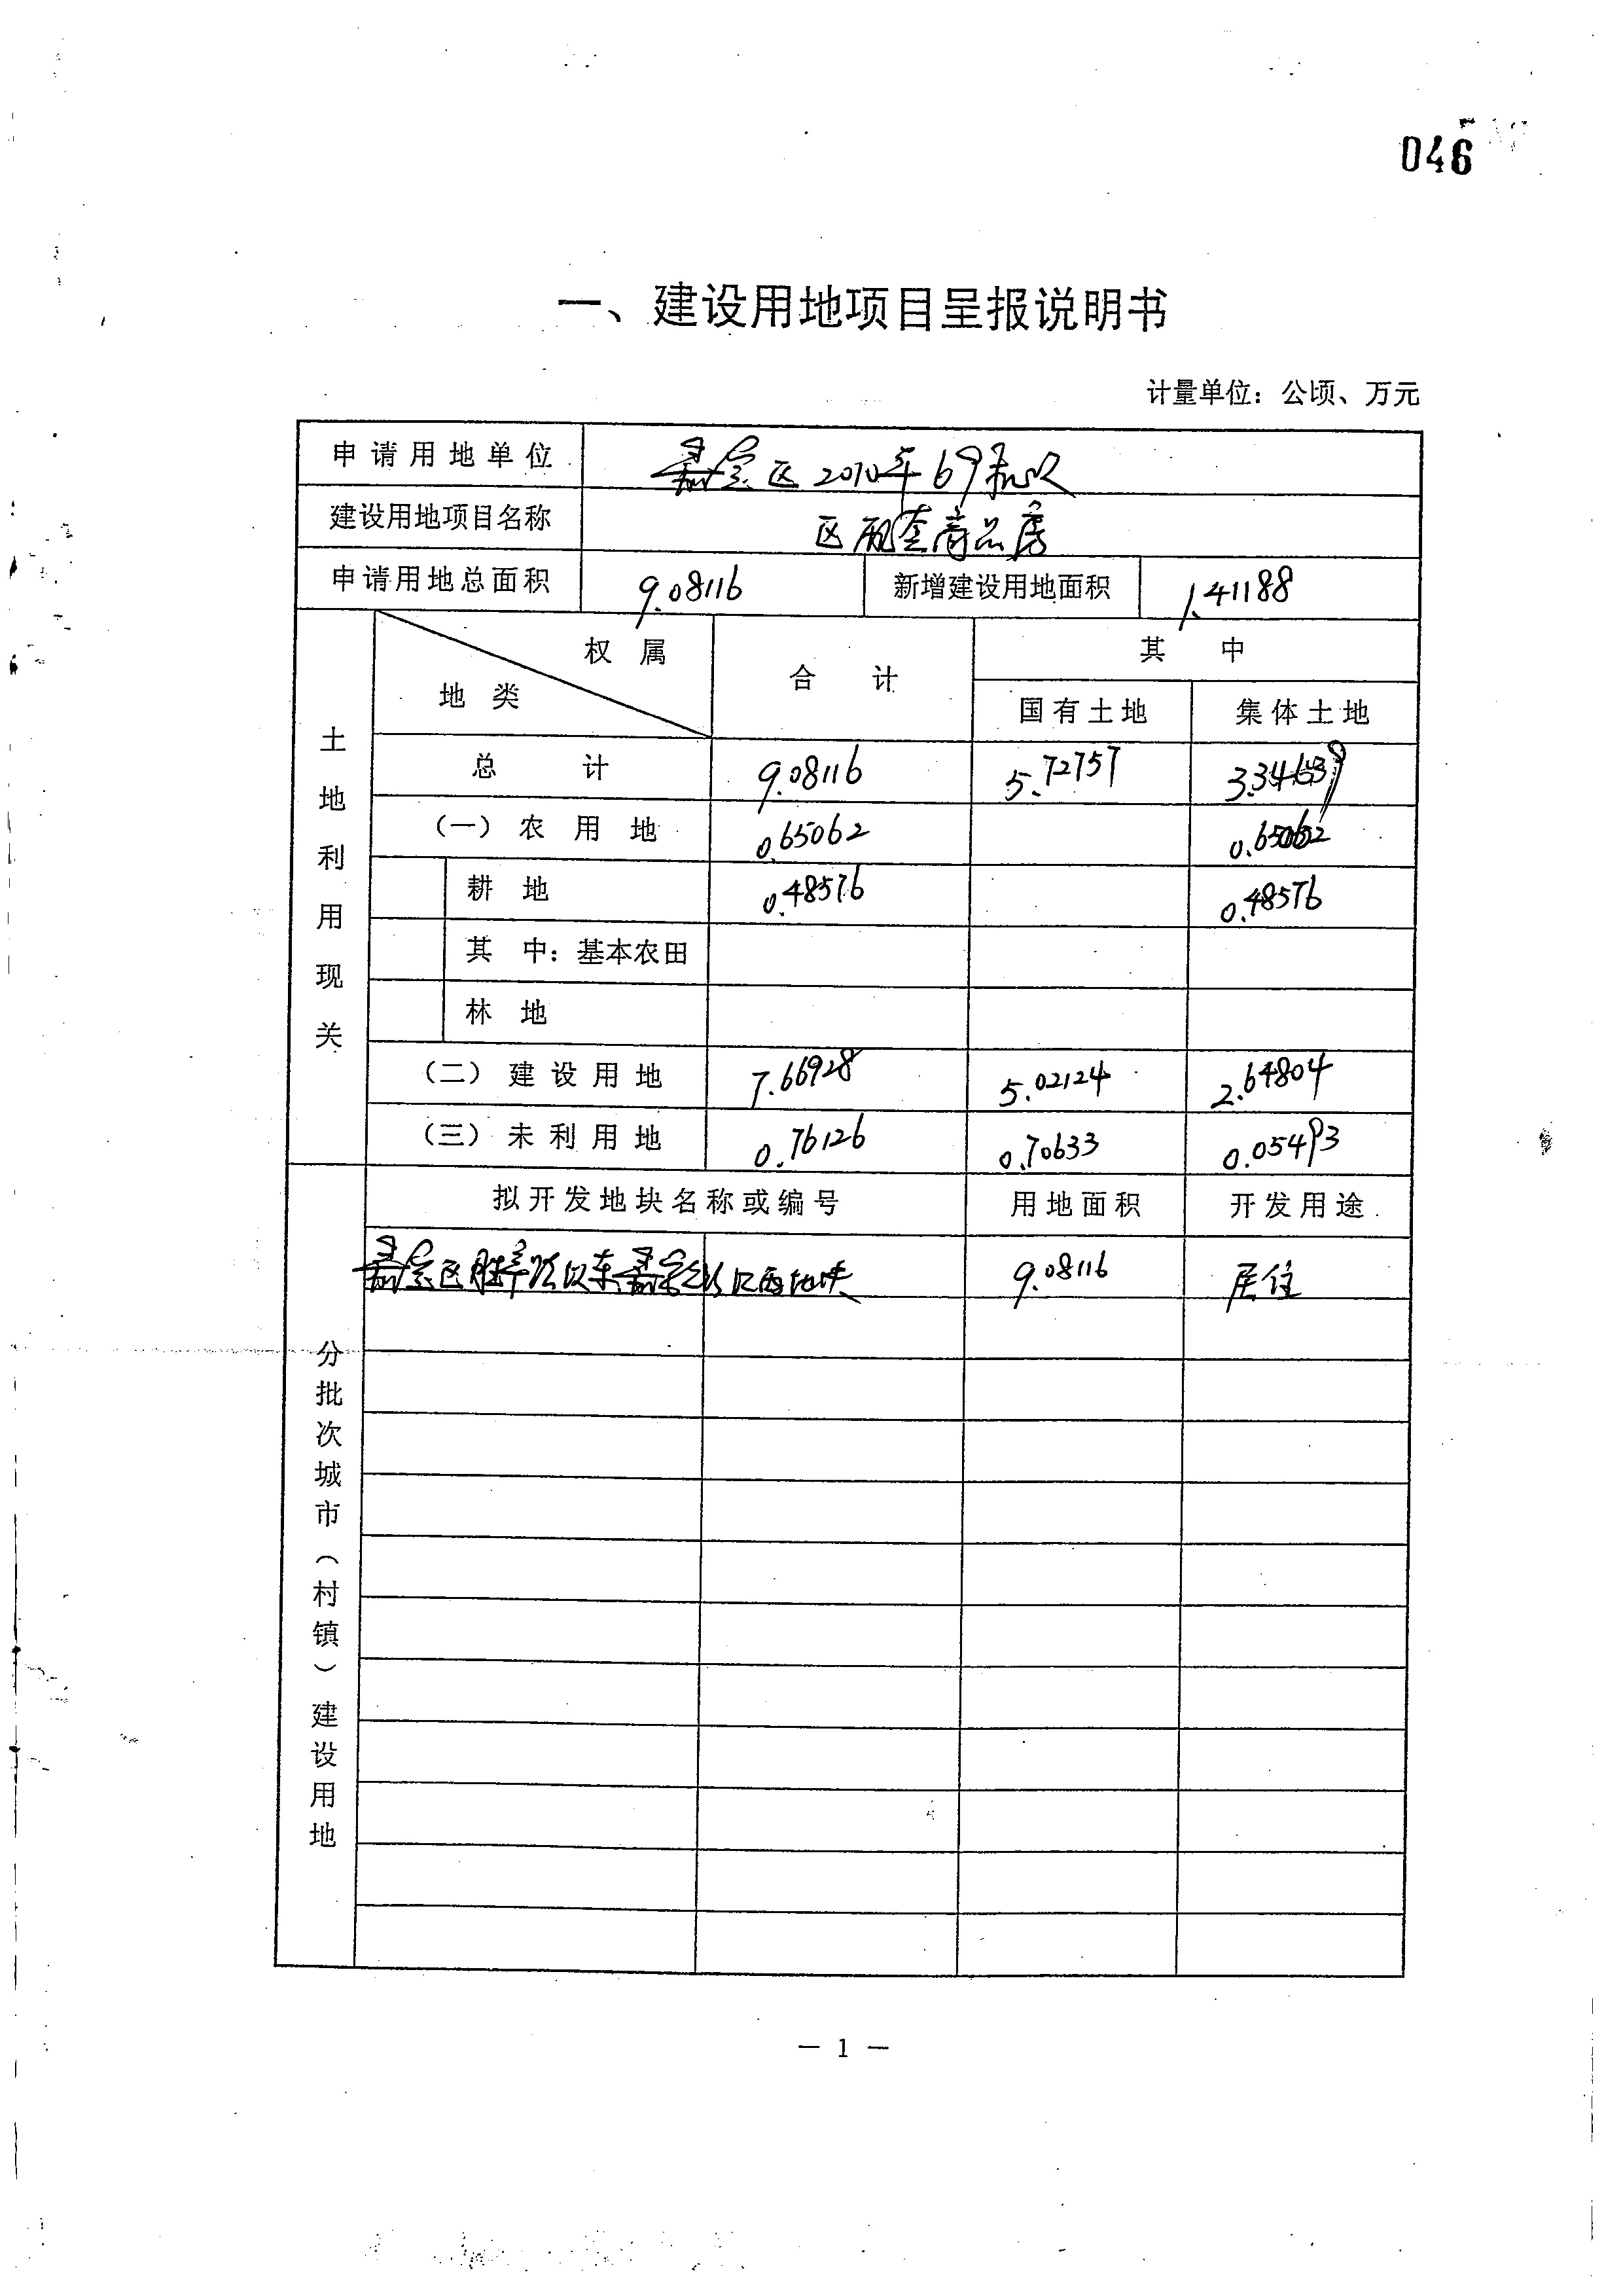 046
一、建设用地项目呈报说明书
计量单位：公顷、万元
申请用地单位 嘉定区2010年69批次
建设用地项目名称 区配套商品房
申请用地总面积 9.08116 新增建设用地面积 1.41188
权属 合计 其中
地类 国有土地 集体土地
土地利用现关
总计 9.08116 5.72757
（一）农用地 0.65062 0.65062
耕地 0.48576 0.48576
其中：基本农田
林地
（二）建设用地 7.66928 5.02124 2.64804
（三）未利用地 0.76126 0.70633 0.05493
拟开发地块名称或编号 用地面积 开发用途
嘉定区胜辛路以东嘉 以西地块 9.08116 居住
分批次城市（村镇）建设用地
— 1 —